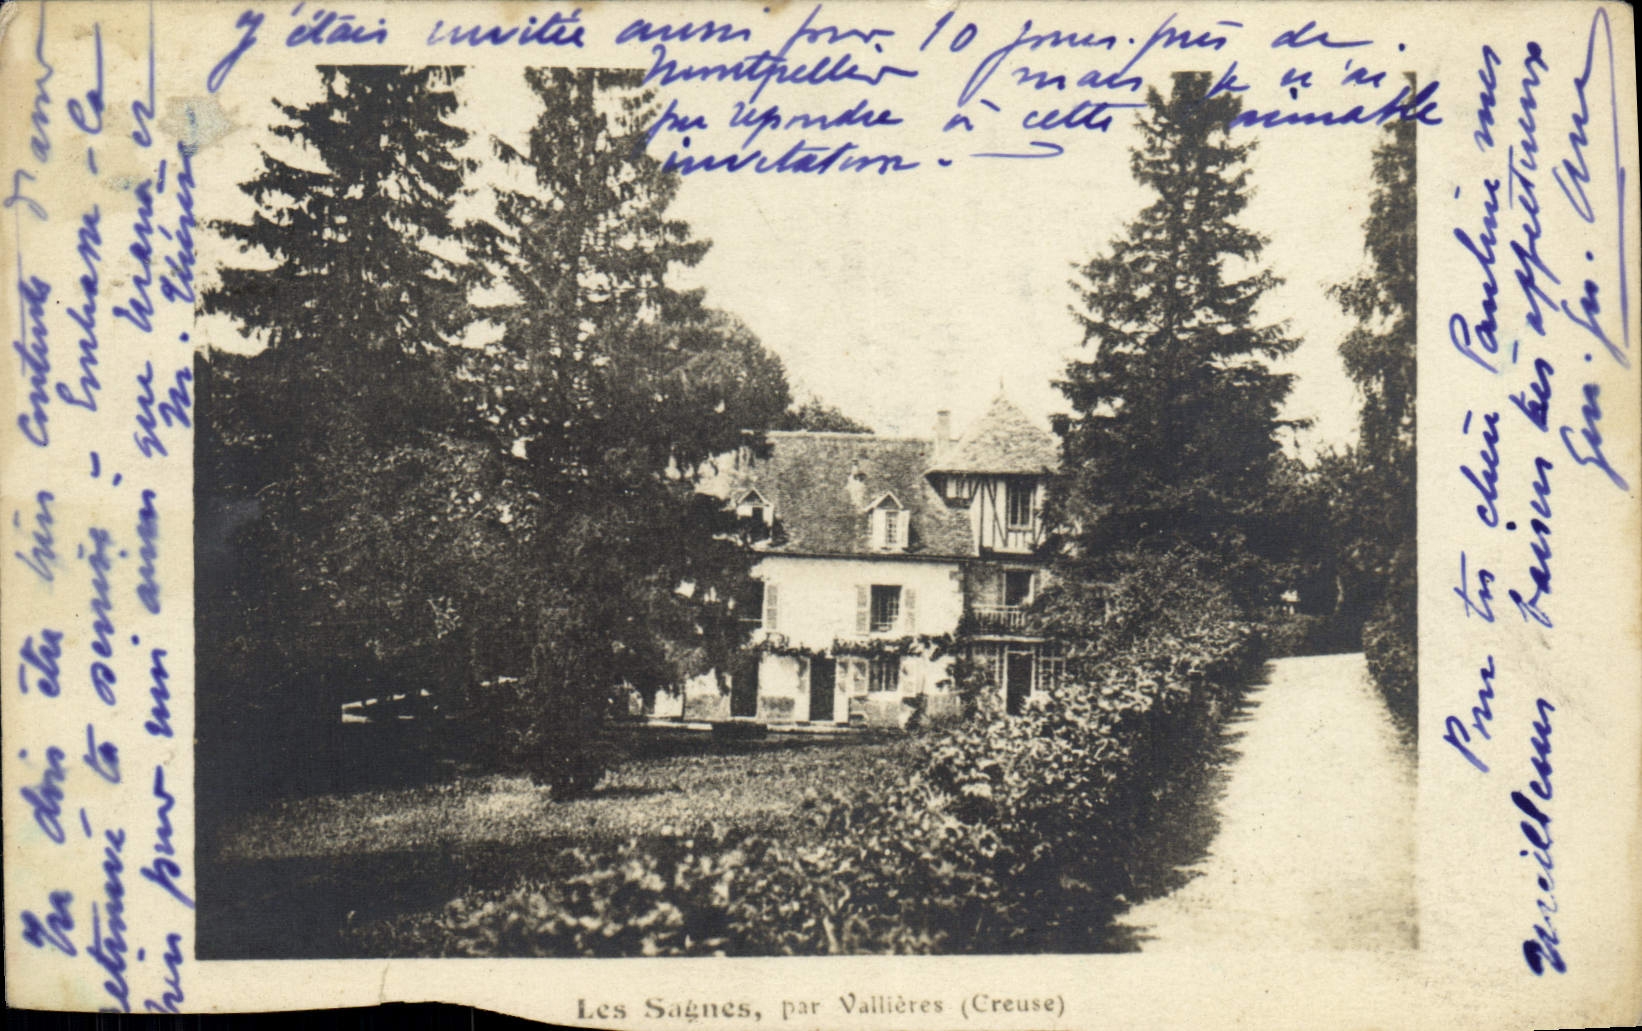 J'étais invitée aussi pour 10 jours près de
Montpellier mais je n'ai
pu répondre à cette aimable
invitation. -
Tu dois être bien contente d'avoir
ta - Embrasse-la
bien pour moi ainsi que Maria et
M. Thérèse
Pour toi chère Pauline mes
meilleurs baisers très affectueux
Les Sagnes, par Vallières (Creuse)